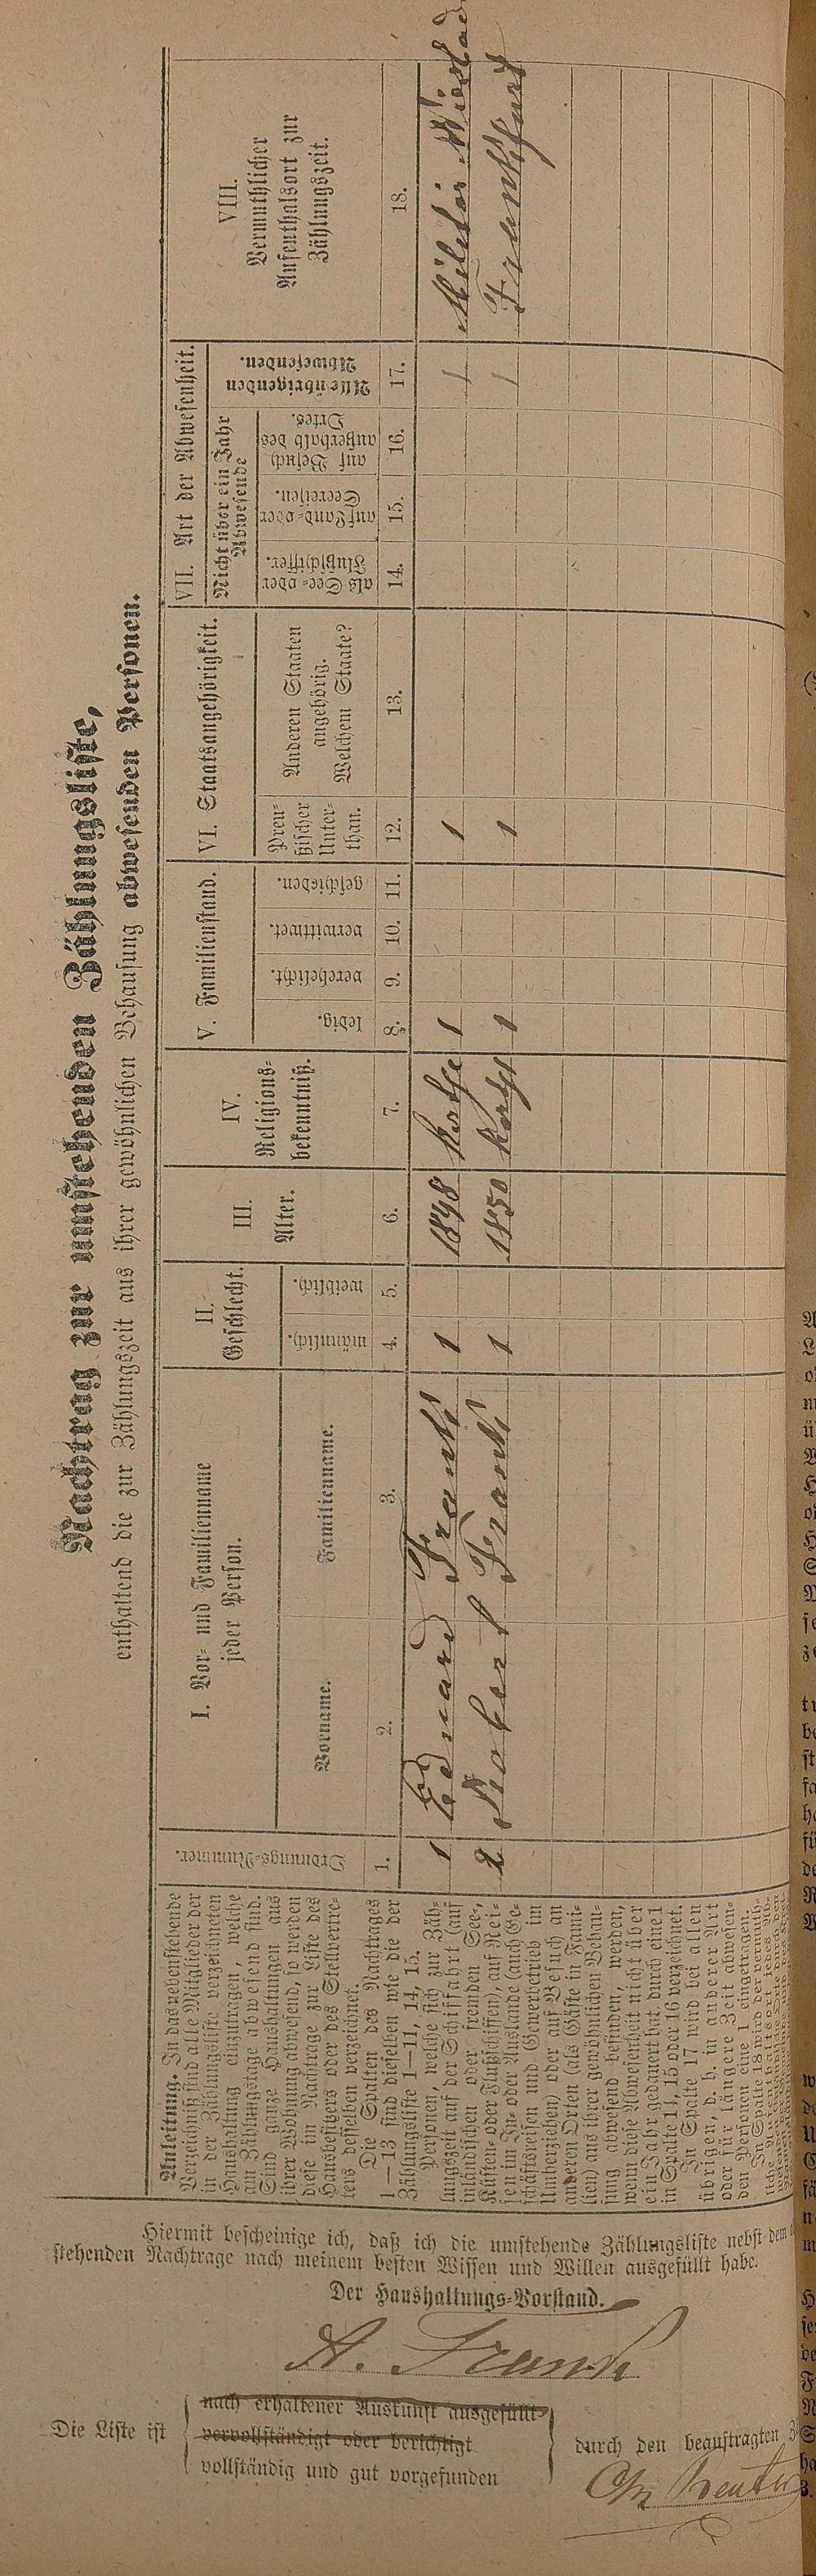 Nachtrag zur umstehenden Zählungsliste,
enthaltend die zur Zählungszeit aus ihrer gewöhnlichen Behausung abwesenden Personen.
Anleitung. In das nebenstehende
Verzeichniß sind alle Mitglieder der
in der Zählungsliste verzeichneten
Haushaltung einzutragen, welche
am Zählungstage abwesend sind.
Sind ganze Haushaltungen aus
ihrer Wohnung abwesend, so werden
diese im Nachtrage zur Liste des
Hausbesitzers oder des Stellvertre-
ters desselben verzeichnet.
Die Spalten des Nachtrages
1—13 sind dieselben wie die der
Zählungsliste 1—11, 14, 15.
Personen, welche sich zur Zäh-
lungszeit auf der Schifffahrt (auf
inländischen oder fremden See-,
Küsten- oder Flußschiffen), auf Rei-
sen im In- oder Auslande (auch Ge-
schäftsreisen und Gewerbetrieb im
Umherziehen) oder auf Besuch an
anderen Orten (als Gäste in Fami-
lien) aus ihrer gewöhnlichen Behau-
sung abwesend befinden, werden,
wenn diese Abwesenheit nicht über
ein Jahr gedauert hat, durch eine 1
in Spalte 14, 15 oder 16 verzeichnet.
In Spalte 17 wird bei allen
übrigen, d. h. in anderer Art
oder für längere Zeit abwesen-
den Personen eine 1 eingetragen.
In Spalte 18 wird der vermuth-
Ordnungs-Nummer.
I. Vor- und Familienname
jeder Person.
Vorname.
Familienname.
II.
Geschlecht.
männlich.
weiblich.
III.
Alter.
IV.
Religions-
bekenntniß.
V. Familienstand.
ledig.
verehelicht.
verwittwet.
geschieden.
VI. Staatsangehörigkeit.
Preu-
ßischer
Unter-
than.
Anderen Staaten
angehörig.
Welchem Staate?
VII. Art der Abwesenheit.
Nicht über ein Jahr
Abwesende
als See- oder
Flußschiffer.
auf Land- oder
Seereisen.
auf Besuch
außerhalb des
Ortes.
Alle übrigenden
Abwesenden.
VIII.
Vermuthlicher
Aufenthalsort zur
Zählungszeit.
1. 2. 3. 4. 5. 6. 7. 8. 9. 10. 11. 12. 13. 14. 15. 16. 17. 18.
1 Eduard Frank 1 1848 1 1 1 Militär
2 Robert Frank 1 1850 Kath 1 1 1 Frankfurt
Hiermit bescheinige ich, daß ich die umstehende Zählungsliste nebst dem
stehenden Nachtrage nach meinem besten Wissen und Willen ausgefüllt habe.
Der Haushaltungs-Vorstand.
A. Frank
Die Liste ist
nach erhaltener Auskunft ausgefüllt
vervollständigt oder berichtigt
vollständig und gut vorgefunden
durch den beauftragten